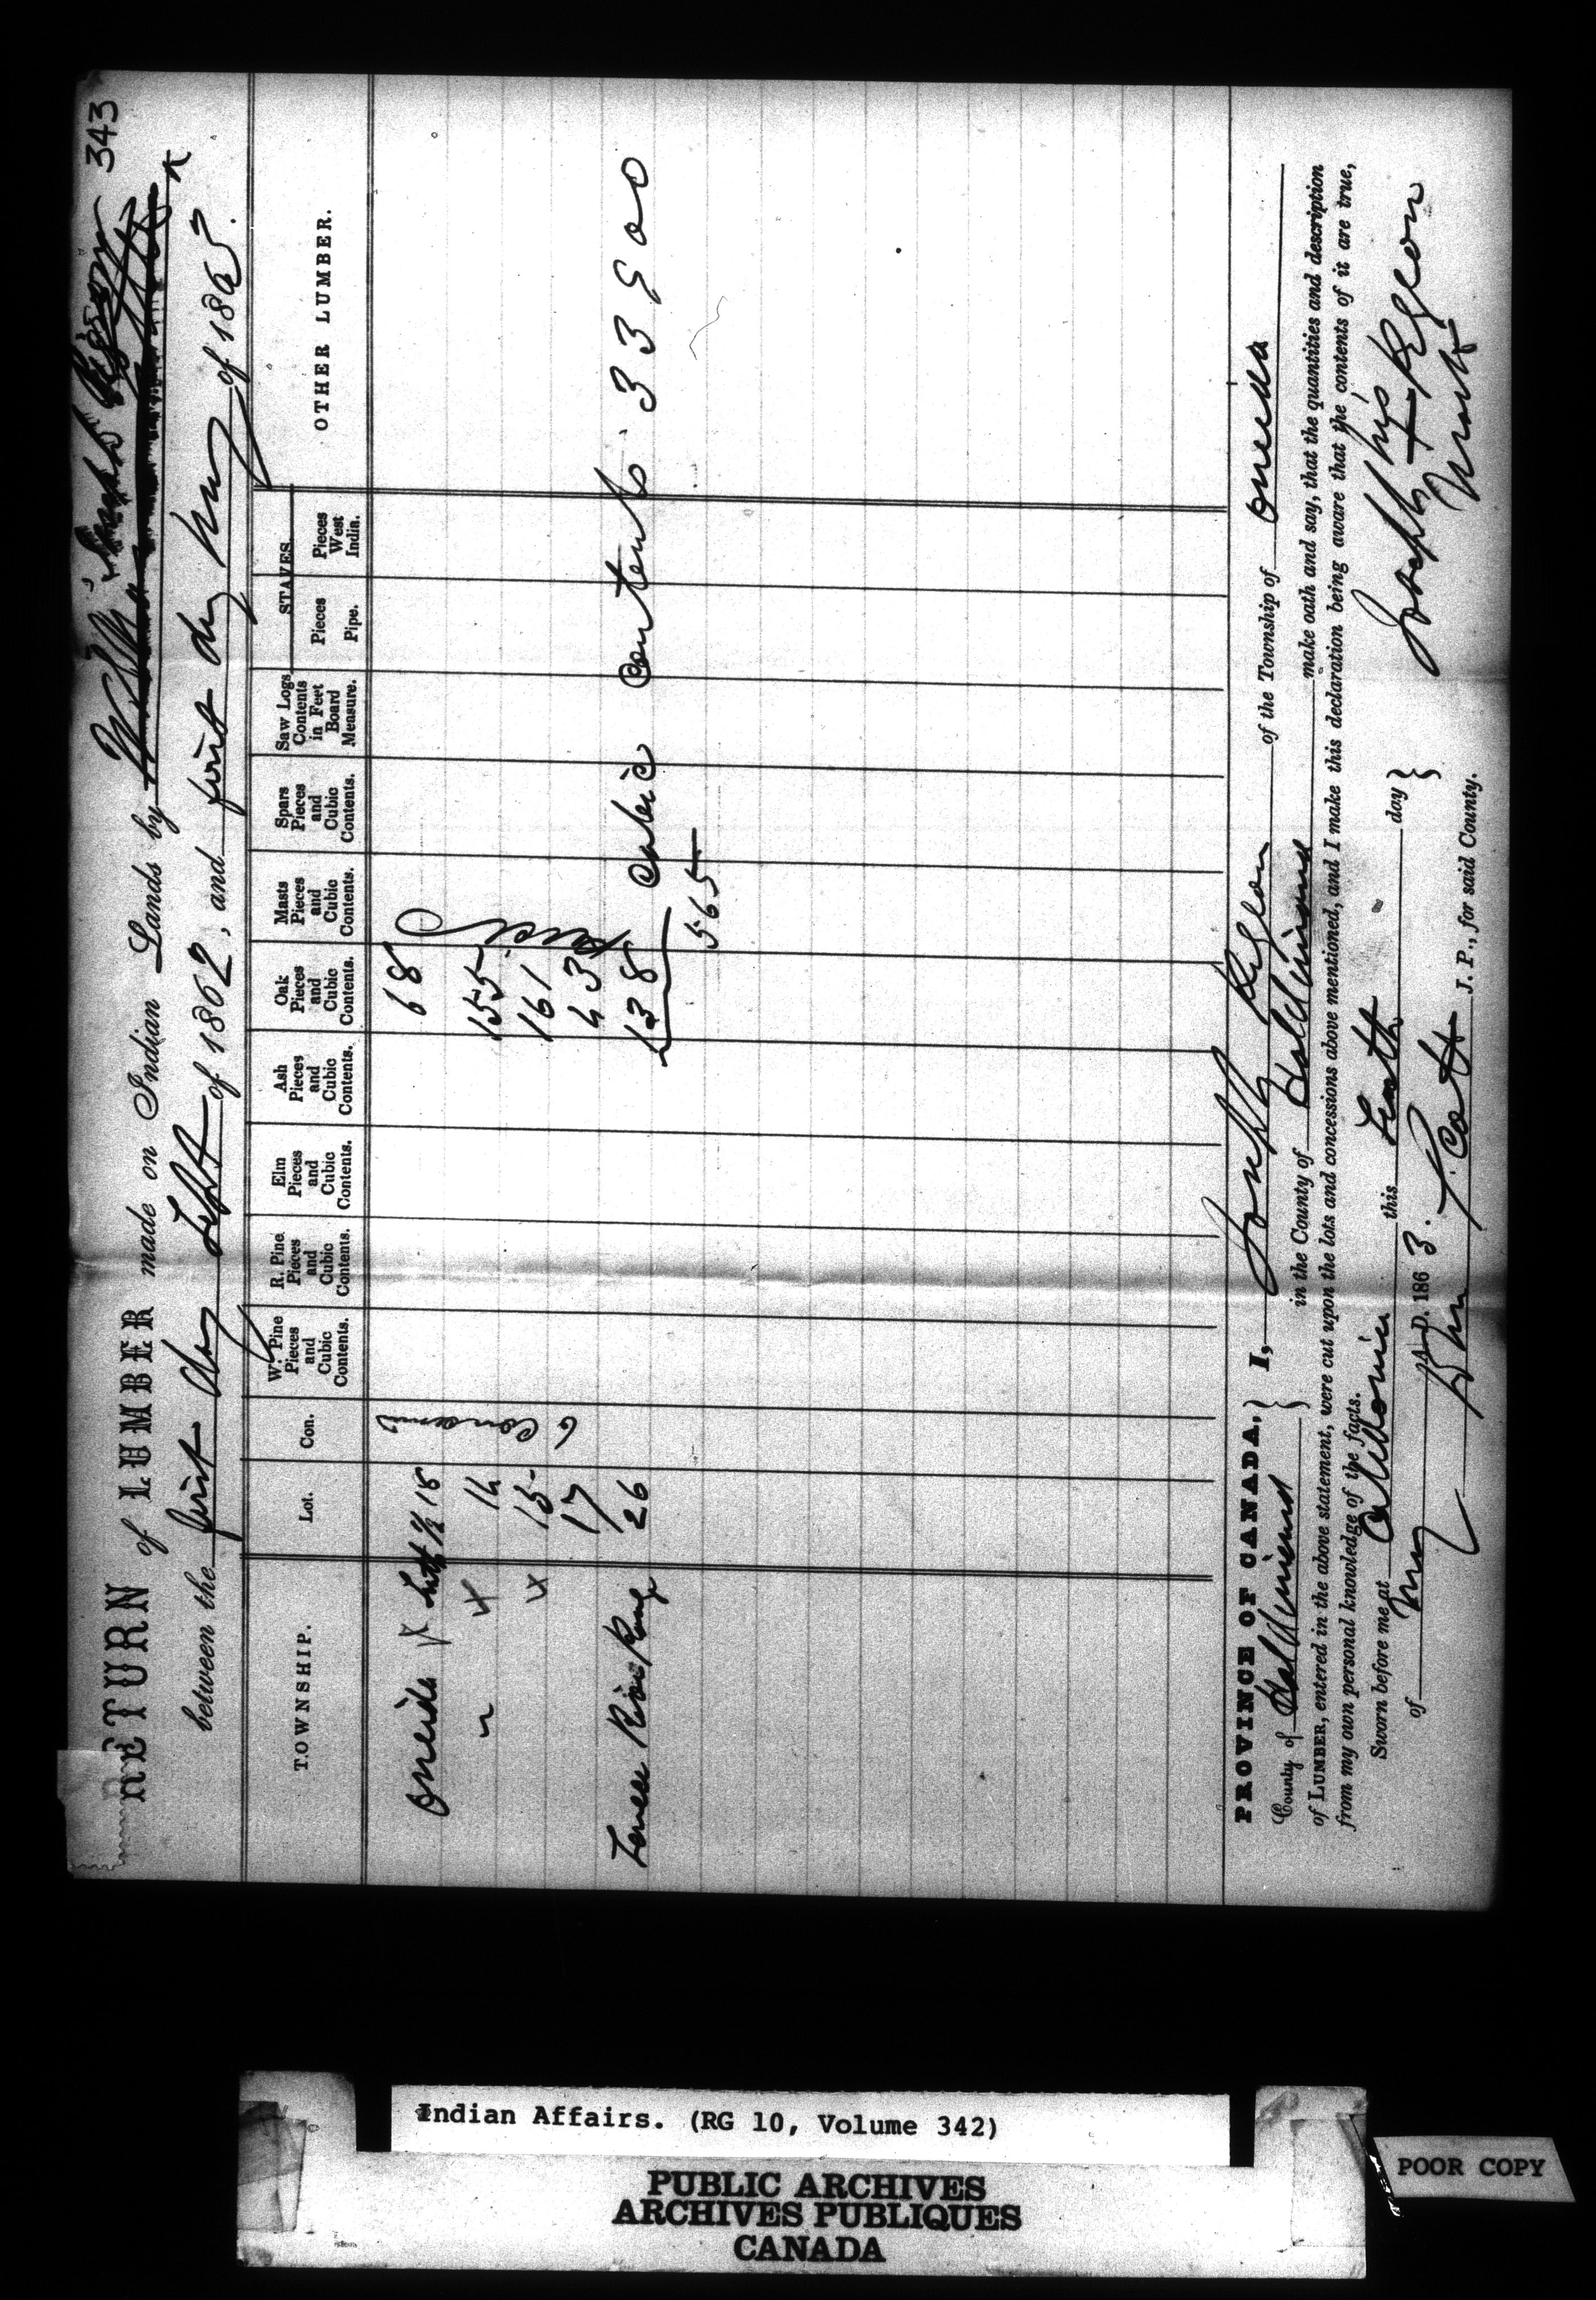 343
RETURN of LUMBER made on Indian Lands by
between the first day Sept of 1862, and first day May of 1863.
TOWNSHIP.
Lot.
Con.
W. Pine Pieces and Cubic Contents.
R. Pine Pieces and Cubic Contents.
Elm Pieces and Cubic Contents.
Ash Pieces and Cubic Contents.
Oak Pieces and Cubic Contents.
Masts Pieces and Cubic Contents.
Spars Pieces and Cubic Contents.
Saw Logs Contents in Feet Board Measure.
STAVES
Pieces Pipe.
Pieces West India.
OTHER LUMBER.
Oneida 1/2 18 68
14 155
15 161
17 43
River Range 26 138 Cubic Contents. 33900
565
PROVINCE OF CANADA,
County of Haldimand
I, Joseph of the Township of Oneida
in the County of Haldimand make oath and say, that the quantities and description
of LUMBER, entered in the above statement, were cut upon the lots and concessions above mentioned, and I make this declaration being aware that the contents of it are true,
from my own personal knowledge of the facts.
Sworn before me at Caledonia this tenth day
of May A.D. 1863.
Wm Scott J. P., for said County.
his
Joseph +
mark
Indian Affairs. (RG 10, Volume 342)
PUBLIC ARCHIVES
ARCHIVES PUBLIQUES
CANADA
POOR COPY